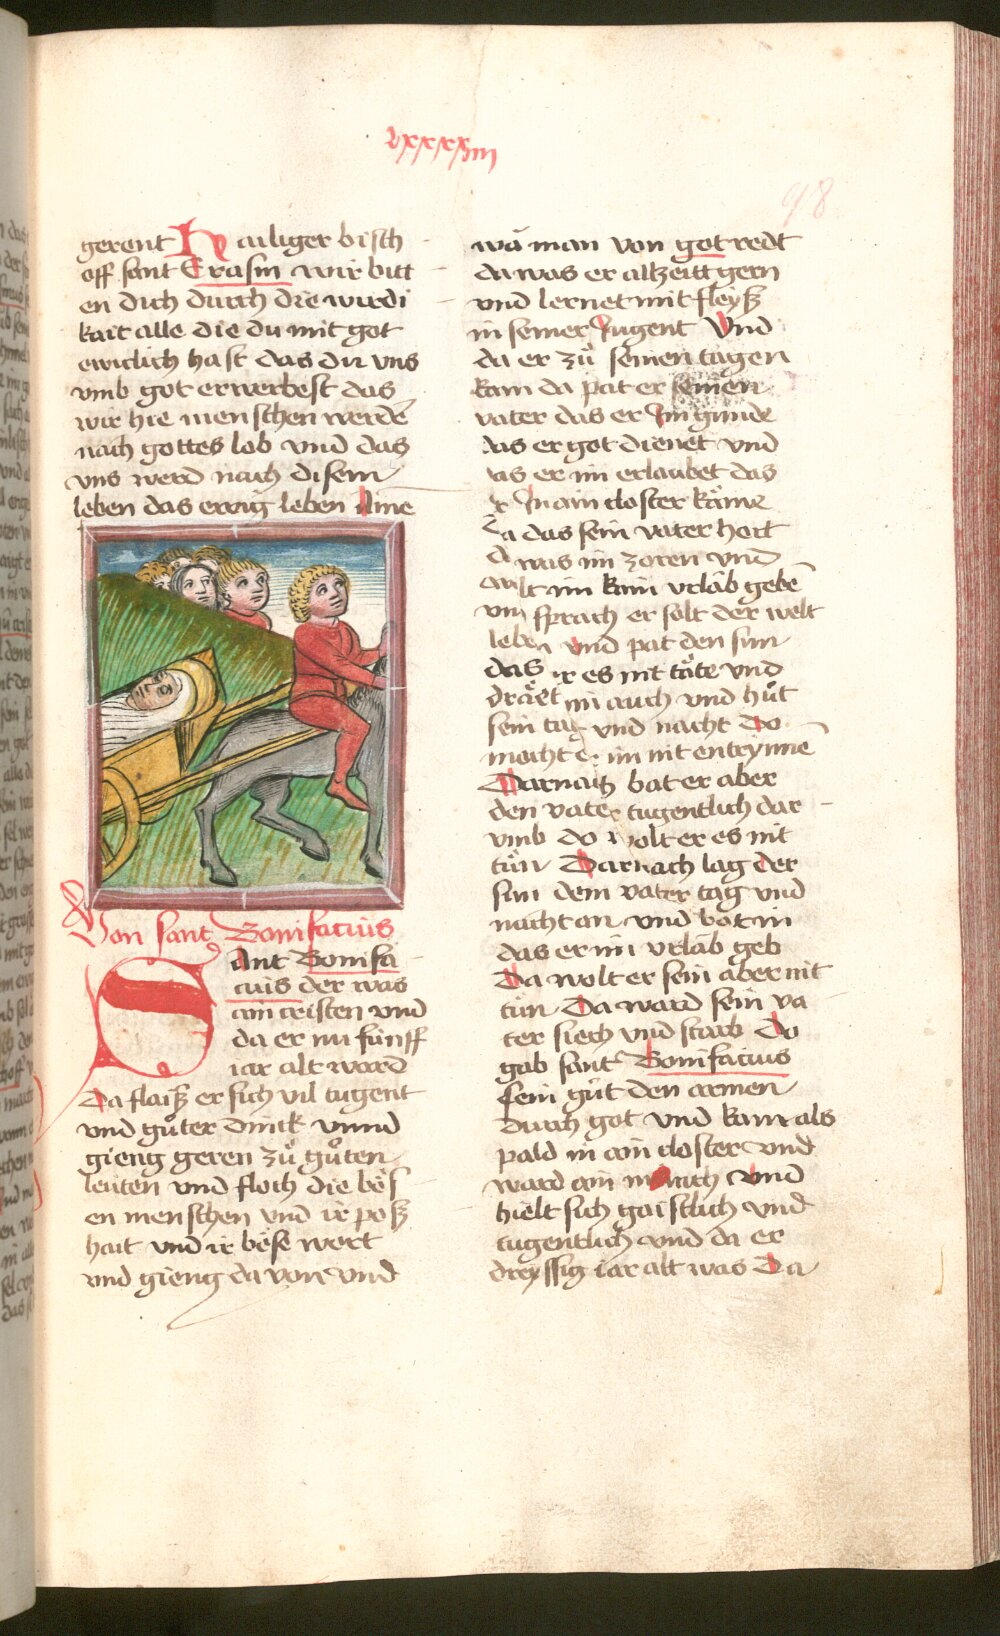 lxxxxiiii
98
gerent Hailiger bisch
off sant Erasm wir bitt
en dich durch die wirdi
kait alle die du mit got
ewiclich hast das du vns
vmb got erwerbest das
wir hie menschen werdē
nach gottes lob vnd das
vns werd nach disem
leben das ewig leben Ame
Von sant Bonifacius
Sant Bonifa
cius der was
ain cristen vnd
da er nu fünff
iar alt ward
Da flaiß er sich vil tugent
vnd guͦter dinck vnnd
gieng geren zuͦ guͦten
leuten vnd floch die boͤs
en menschen vnd ir poß
hait vnd ir boͤse wort
vnd gieng da von vnd
wā man von got redt
da was er alzeitt gern
vnd lernet mit fleyß
in seiner Jugent Vnd
da er zuͦ seinen tagen
kam da pat er seinen
vater das er Jm gunde
das er got dienet vnd
das er im erlaubet das
er Jn ain closter käme
Da das sein vater hort
d was im zoren vnd
wolt im kain vrlab gebē
vnn sprach er solt der welt
leben vnd pat den sun
das er es nit täte vnd
dräet im auch vnd huͦt
sein tag vnd nacht Do
mocht er im nit entrynnē
Darnach bat er aber
den vater tugentlich dar
vmb do wolt er es nit
tuͦn Darnach lag der
sun dem vater tag vnd
nacht an vnd bat in
das er im vrlab geb
Da wolt er sein aber nit
tuͦn Da ward sein va
ter siech vnd starb Do
gab sant Bonifacius
sein guͦt den armen
durch got vnd kam als
pald in ain closter vnd
ward ain münch vnnd
hielt sich gaistlich vnd
tugentlich vnd da er
dreyssig iar alt was Da